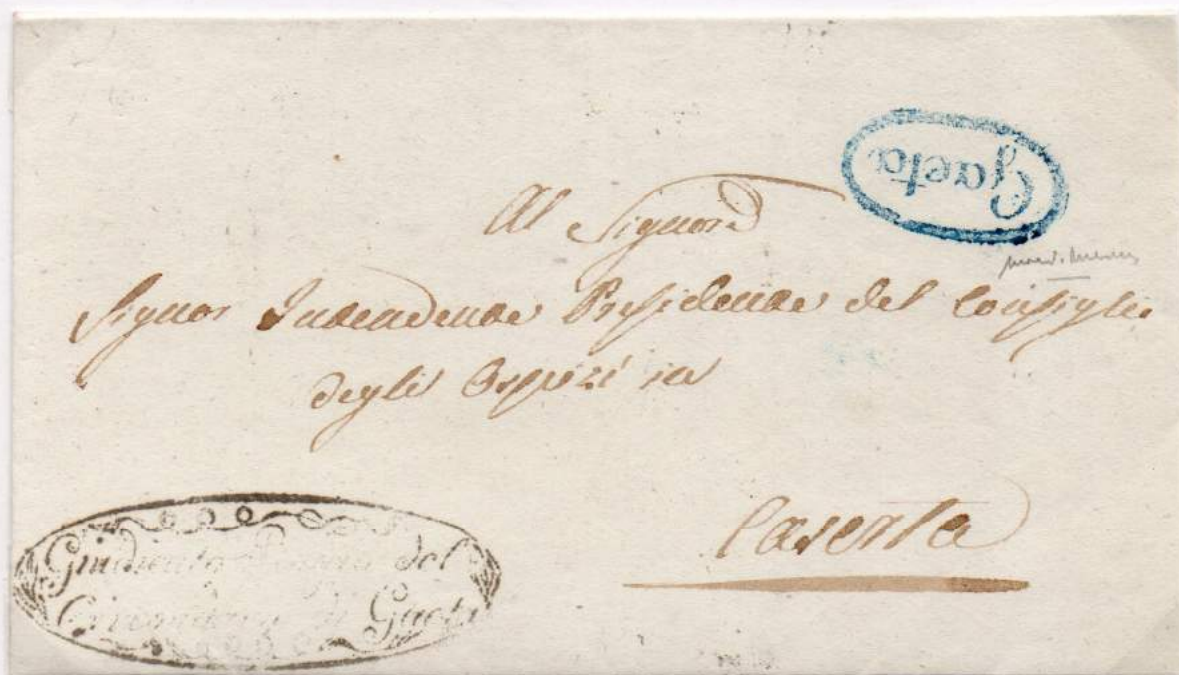 Gaeta
Al Signore
Signor Intendente Presidente del Consiglio
degli Ospizi in
Caserta
Giudicato Regio del
Circondario di Gaeta